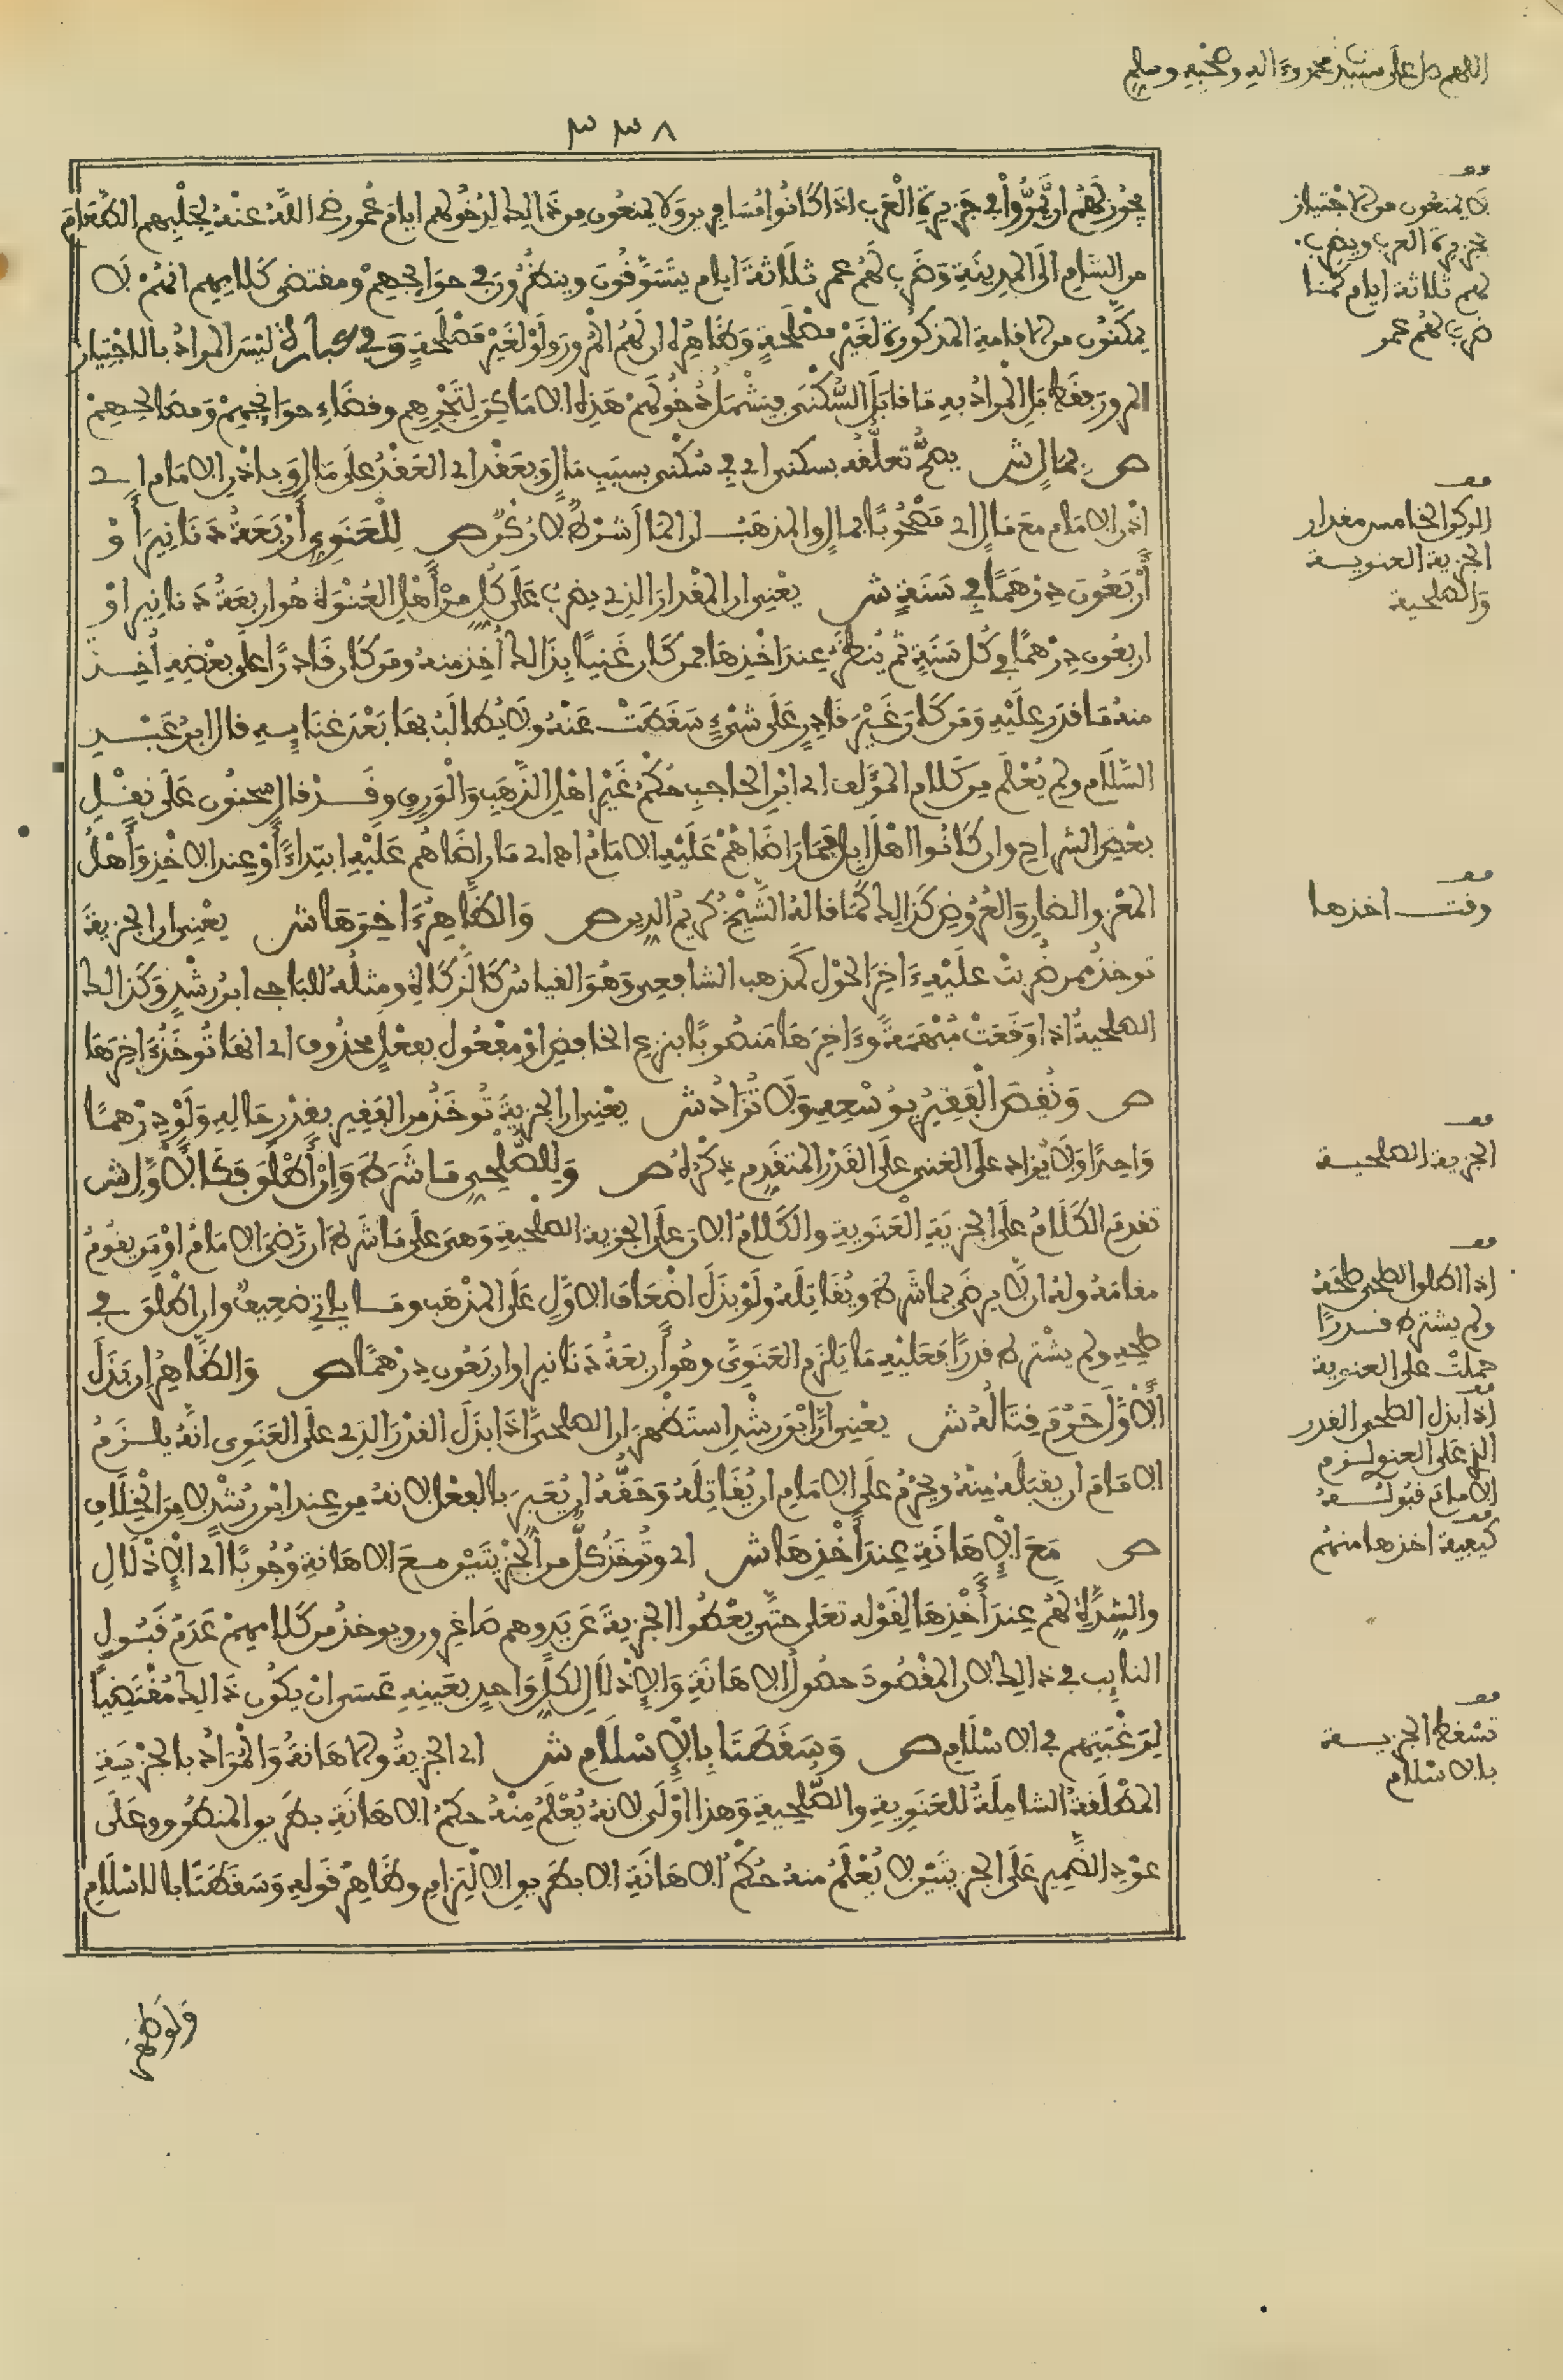 اللهم صل على سيدنا محمد وءاله وصحبه وسلم
٣٣٨
يجوز لهم ان يمروا في جزيرة العرب اذا كانوا مسافرين ولا يمنعون من ذالك لدخولهم ايام عمر رضي الله عنه لجلبهم الطعام
من الشام الى المدينة وضرب لهم عمر ثلاثة ايام يتسوقون وينظرون في حوايجهم ومقتضى كلامهم انهم لا
يمكنون من الاقامة المذكورة لغير مصلحة وظاهره ان لهم المرور ولو لغير مصلحة وفي عبارة ليس المراد بالاجتياز
المرور فقط بل المراد به ما قابل السكنى فيشمل دخولهم هذه الاماكن لتجرهم وقضاء حوايجهم ومصالحهم
ص بمال ش يصح تعلقه بسكنى اي في سكنى بسبب مال وبعقد اي العقد على مال وباذن الامام اي
اذن الامام مع مال اي مصحوبا بمال والمذهب ان المال شرط لا ركن ص للعنوي أربعة دنانير أو
أربعون درهما في سنة ش يعني ان المقدار الذي يضرب على كل من أهل العنوة هو اربعة دنانير او
اربعون درهما في كل سنة ثم ينظر عند اخذها فمن كان غنيا بذالك أخذ منه ومن كان قادرا على بعضه أخذ
منه ما قدر عليه ومن كان غير قادر على شيء سقطت عنه ولا يطالب بها بعد غنايه قال ابن عبد
السلام ولم يعلم من كلام المؤلف اي ابن الحاجب حكم غير اهل الذهب والورق وقد قال سحنون على نقل
بعض الشراح وان كانوا اهل ابل فما راضاهم عليه الامام اه اي ما راضاهم عليه ابتداء أو عند الاخذ وأهل
المعز والضان والعروض كذالك كما قاله الشيخ كريم الدين ص والظاهر ءاخرها ش يعني ان الجزية
توخذ ممن ضربت عليه ءاخر الحول كمذهب الشافعي وهو القياس كالزكاة ومثله للباجي ابن رشد وكذالك
الصلحية اذا وقعت مبهمة وءاخرها منصوبا بنزع الخافض او مفعول بفعل محذوف اي انها توخذ ءاخرها
ص ونقص الفقير بوسعه ولا تزاد ش يعني ان الجزية توخذ من الفقير بقدر حاله ولو درهما
واحدا ولا يزاد على الغني على القدر المتقدم ذكره ص وللصلحي ما شرط وإن أطلق فكالاول ش
تقدم الكلام على الجزية العنوية والكلام الان على الجزية الصلحية وهي على ما شرط ان رضي الامام او من يقوم
مقامه وله ان لا يرضى بما شرط ويقاتله ولو بذل اضعاف الاول على المذهب وما ياتي ضعيف وان اطلق في
صلحه ولم يشترط قدرا فعليه ما يلزم العنوي وهو أربعة دنانير او اربعون درهما ص والظاهر إن بذل
الأول حرم قتاله ش يعني ان ابن رشد استظهر ان الصلحي اذا بذل القدر الذي على العنوي انه يلزم
الامام ان يقبله منه ويحرم على الامام ان يقاتله وحقه ان يعبر بالفعل لانه من عند ابن رشد لا من الخلاف
ص مع الإهانة عند أخذها ش اي وتوخذ كل من الجزيتين مع الاهانة وجوبا اي الإذلال
والشدة لهم عند أخذها لقوله تعلى حتى يعطوا الجزية عن يد وهم صاغرون ويوخذ من كلامهم عدم قبول
النايب في ذالك لان المقصود حصول الاهانة والإذلال لكل واحد بعينه عسى ان يكون ذالك مقتضيا
لرغبتهم في الاسلام ص وسقطتا بالإسلام ش اي الجزية والاهانة والمراد بالجزية
المطلقة الشاملة للعنوية والصلحية وهذا اولى لانه يعلم منه حكم الاهانة بطريق المنطوق وعلى
عود الضمير على الجزيتين لا يعلم منه حكم الاهانة الا بطريق الالتزام وظاهر قوله وسقطتا بالاسلام
ولو ظهر
لا يمنعون من الاجتياز
بجزيرة العرب ويضرب
لهم ثلاثة ايام كما
ضرب لهم عمر
الركن الخامس مقدار
الجزية العنوية
والصلحية
وقت اخذها
الجزية الصلحية
اذا اطلق الصلحي صلحه
ولم يشترط قدرا
حملت على العنوية
إذا بذل الصلحي القدر
الذي على العنوي لزم
الامام قبوله
كيفية اخذها منهم
تسقط الجزية
بالاسلام